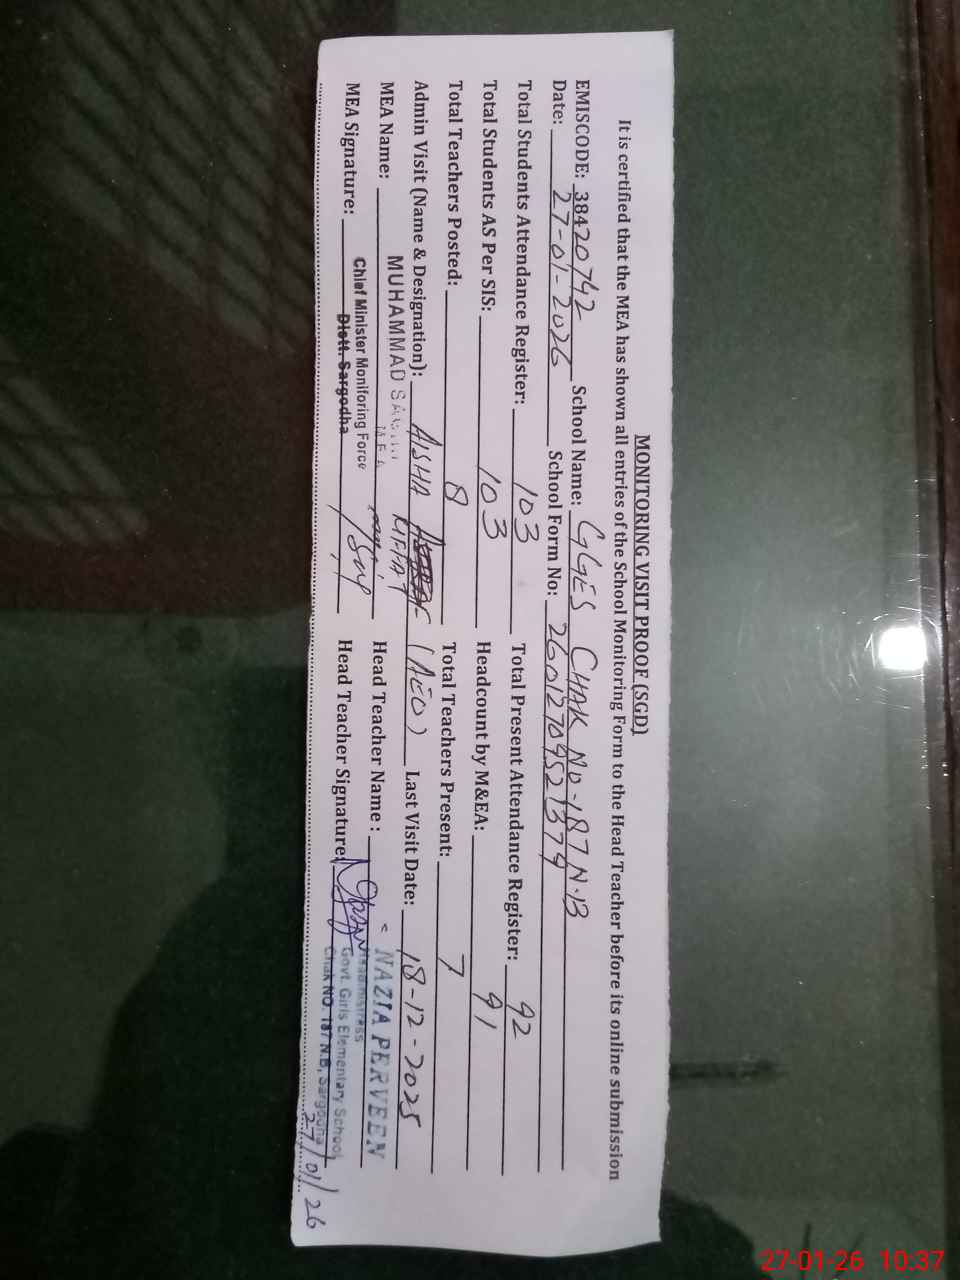 MONITORING VISIT PROOF (SGD)
It is certified that the MEA has shown all entries of the School Monitoring Form to the Head Teacher before its online submission
EMISCODE: 38420742 School Name: GGES CHAK NO-187 N.B
Date: 27-01-2026 School Form No: 26012709521379
Total Students Attendance Register: 103 Total Present Attendance Register: 92
Total Students AS Per SIS: 103 Headcount by M&EA: 91
Total Teachers Posted: 8 Total Teachers Present: 7
Admin Visit (Name & Designation): AISHA RIFFAT (AEO) Last Visit Date: 18-12-2025
MEA Name: MUHAMMAD Head Teacher Name : NAZIA PERVEEN
M.E.A
MEA Signature: Chief Minister Monitoring Force Head Teacher Signature: Headmistress
Distt. Sargodha Govt. Girls Elementary School
Chak NO. 187 N.B, Sargodha
27/01/26
27-01-26 10:37